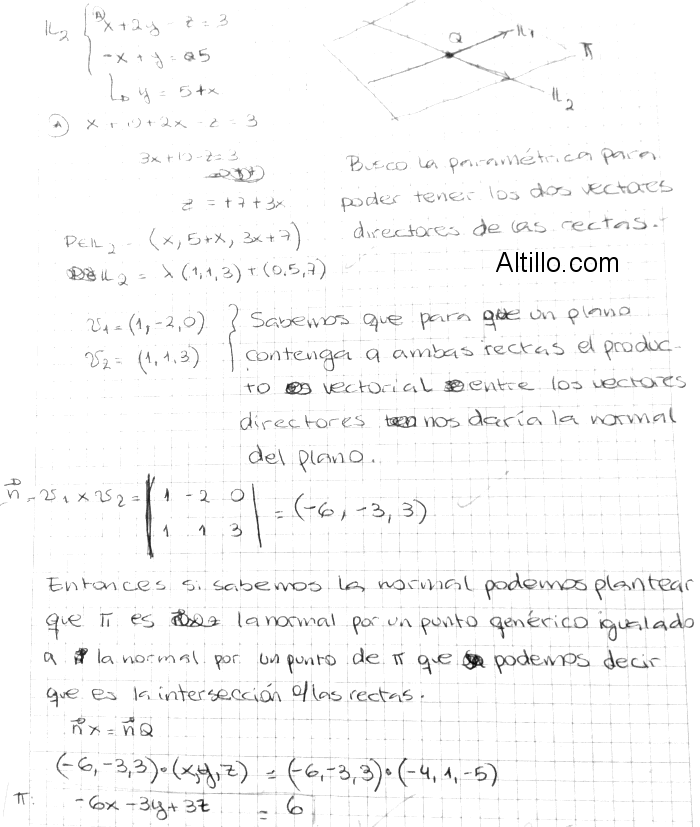 x + 2y - z = 3
-x + y = 5
y = 5+x
Q
π
3x + - z = 3
z = +7+3x
Busco la paramétrica para
poder tener los dos vectores
directores de las rectas.
(x, 5+x, 3x+7)
= λ(1,1,3) + (0,5,7)
Altillo.com
v1 = (1,-2,0)
v2 = (1,1,3)
Sabemos que para que un plano
contenga a ambas rectas el produc-
to vectorial entre los vectores
directores nos daría la normal
del plano.
n = v1 x v2 = | 1 -2 0 | = (-6, -3, 3)
1 1 3
Entonces si sabemos la normal podemos plantear
que π es la normal por un punto genérico igualado
a la normal por un punto de π que podemos decir
que es la intersección d/las rectas.
n x = n Q
(-6,-3,3)•(x,y,z) = (-6,-3,3)•(-4,1,-5)
π: -6x - 3y + 3z = 6